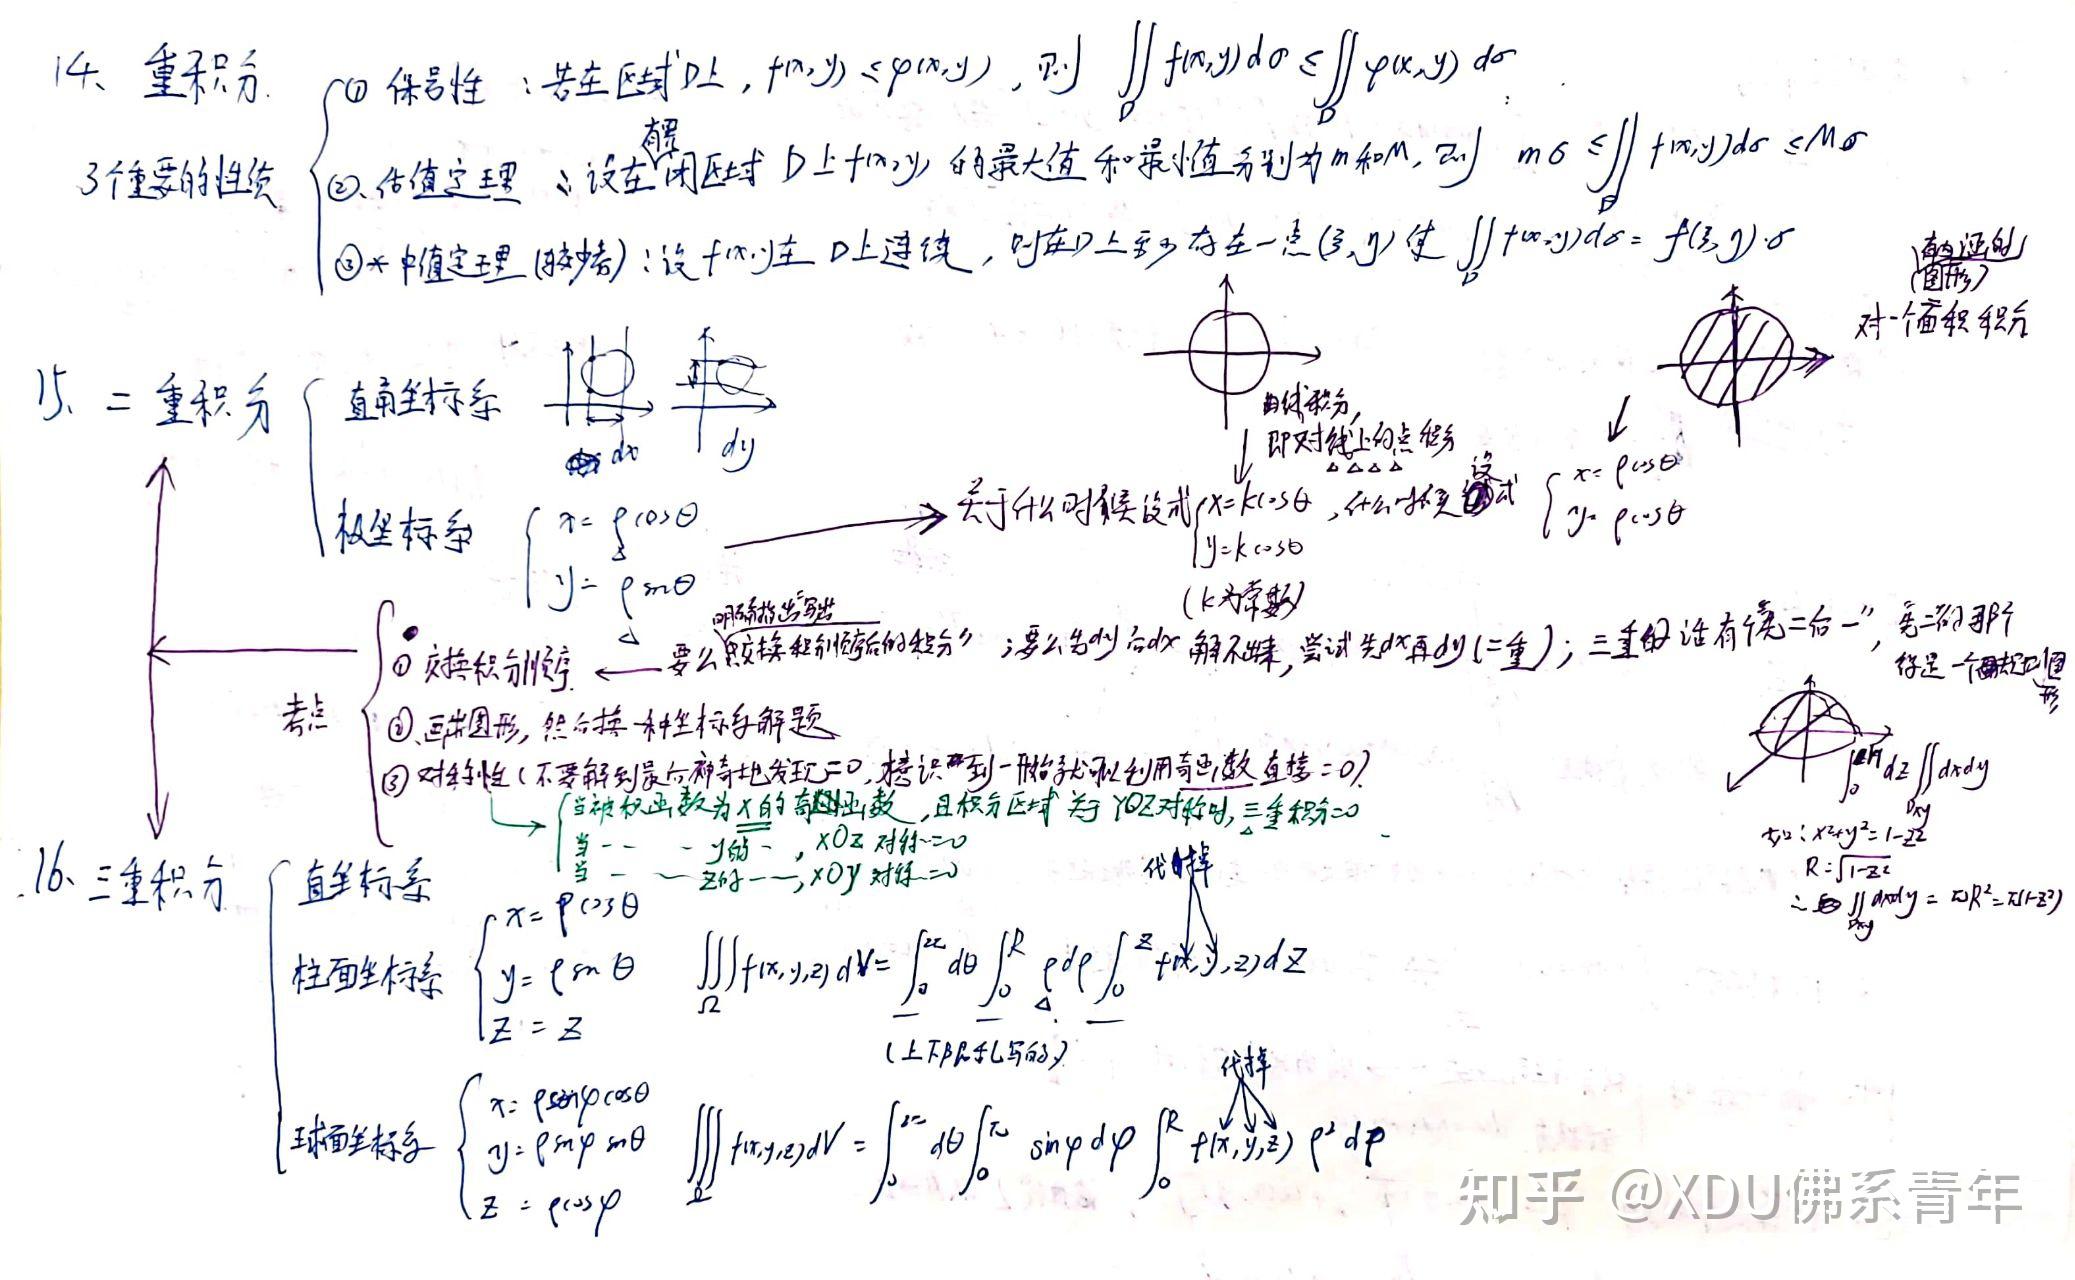 14、重积分
3个重要的性质
① 保号性：若在区域D上，f(x,y)≤φ(x,y)，则 ∬_D f(x,y)dσ ≤ ∬_D φ(x,y)dσ
②、估值定理：设在有界闭区域D上f(x,y)的最大值和最小值分别为m和M，则 mσ ≤ ∬_D f(x,y)dσ ≤ Mσ
③* 中值定理(较少考)：设f(x,y)在D上连续，则在D上至少存在一点(ξ,η)使 ∬_D f(x,y)dσ = f(ξ,η)·σ
(图形)
对一个面积积分
15、二重积分
直角坐标系
dx
dy
曲线积分，
即对线上的点积分
极坐标系
x=ρcosθ
y=ρsinθ
关于什么时候设成 x=kcosθ
y=kcosθ
，什么时候设成 x=ρcosθ
y=ρcosθ
(k为常数)
考点
① 交换积分顺序
要么明确指出"写出交换积分顺序后的积分"；要么先dy后dx解不出来，尝试先dx再dy(二重)；三重的话有个"先二后一"，先二的那个
得是一个规则图形
②、画出图形，然后换一种坐标系解题
③ 对称性(不要解到最后神奇地发现=0，意识到一开始就可以利用奇函数直接=0)
当被积函数为x的奇函数，且积分区域关于YOZ对称时，三重积分=0
当 -- - y的 -，xOz对称=0
当 - — z的 --，xOy对称=0
∫₀ dz ∬_Dxy dxdy
如：x²+y²=1-z²
R=√(1-z²)
∴ ∬_Dxy dxdy = πR²=π(1-z²)
16、三重积分
直坐标系
柱面坐标系
x=ρcosθ
y=ρsinθ
z=z
代掉
∭_Ω f(x,y,z)dV = ∫₀^2π dθ ∫₀^R ρdρ ∫₀^z f(x,y,z)dz
(上下限乱写的)
球面坐标系
x=ρsinφcosθ
y=ρsinφsinθ
z=ρcosφ
代掉
∭_Ω f(x,y,z)dV = ∫₀^2π dθ ∫₀^π sinφdφ ∫₀^R f(x,y,z) ρ²dρ
知乎 @XDU佛系青年